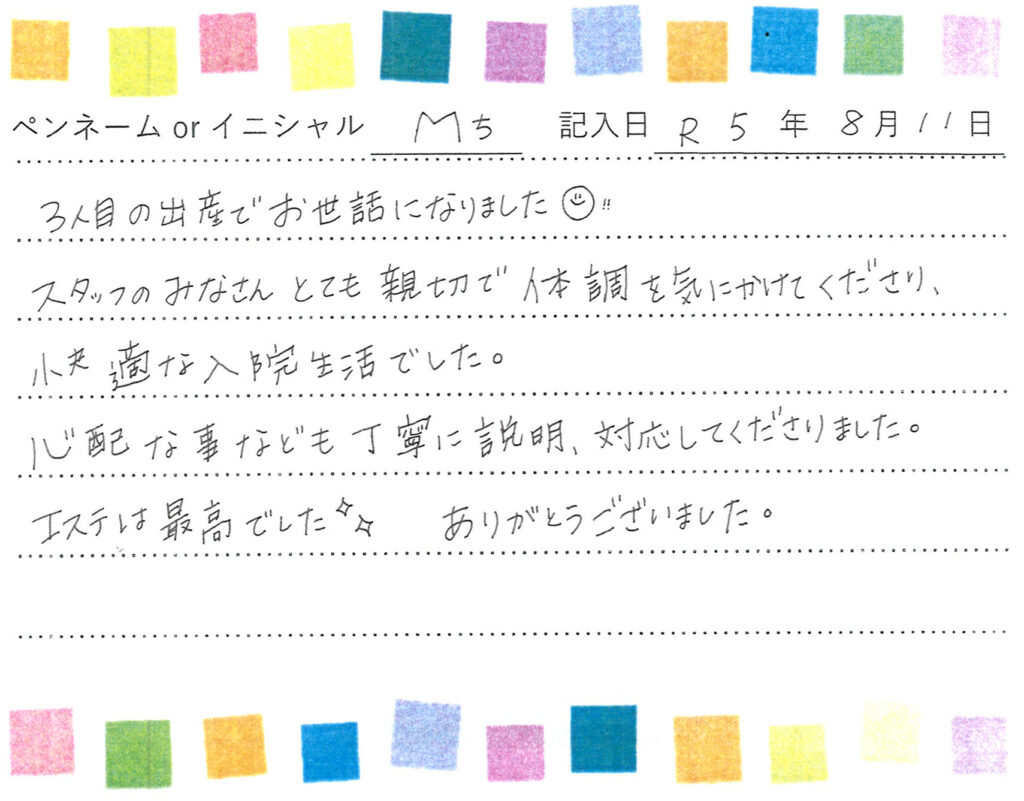 ペンネーム or イニシャル Mち 記入日 R 5 年 8月 11 日
3人目の出産でお世話になりました☺!!
スタッフのみなさんとても親切で体調を気にかけてくださり、
快適な入院生活でした。
心配な事なども丁寧に説明、対応してくださりました。
エステは最高でした✨ ありがとうございました。